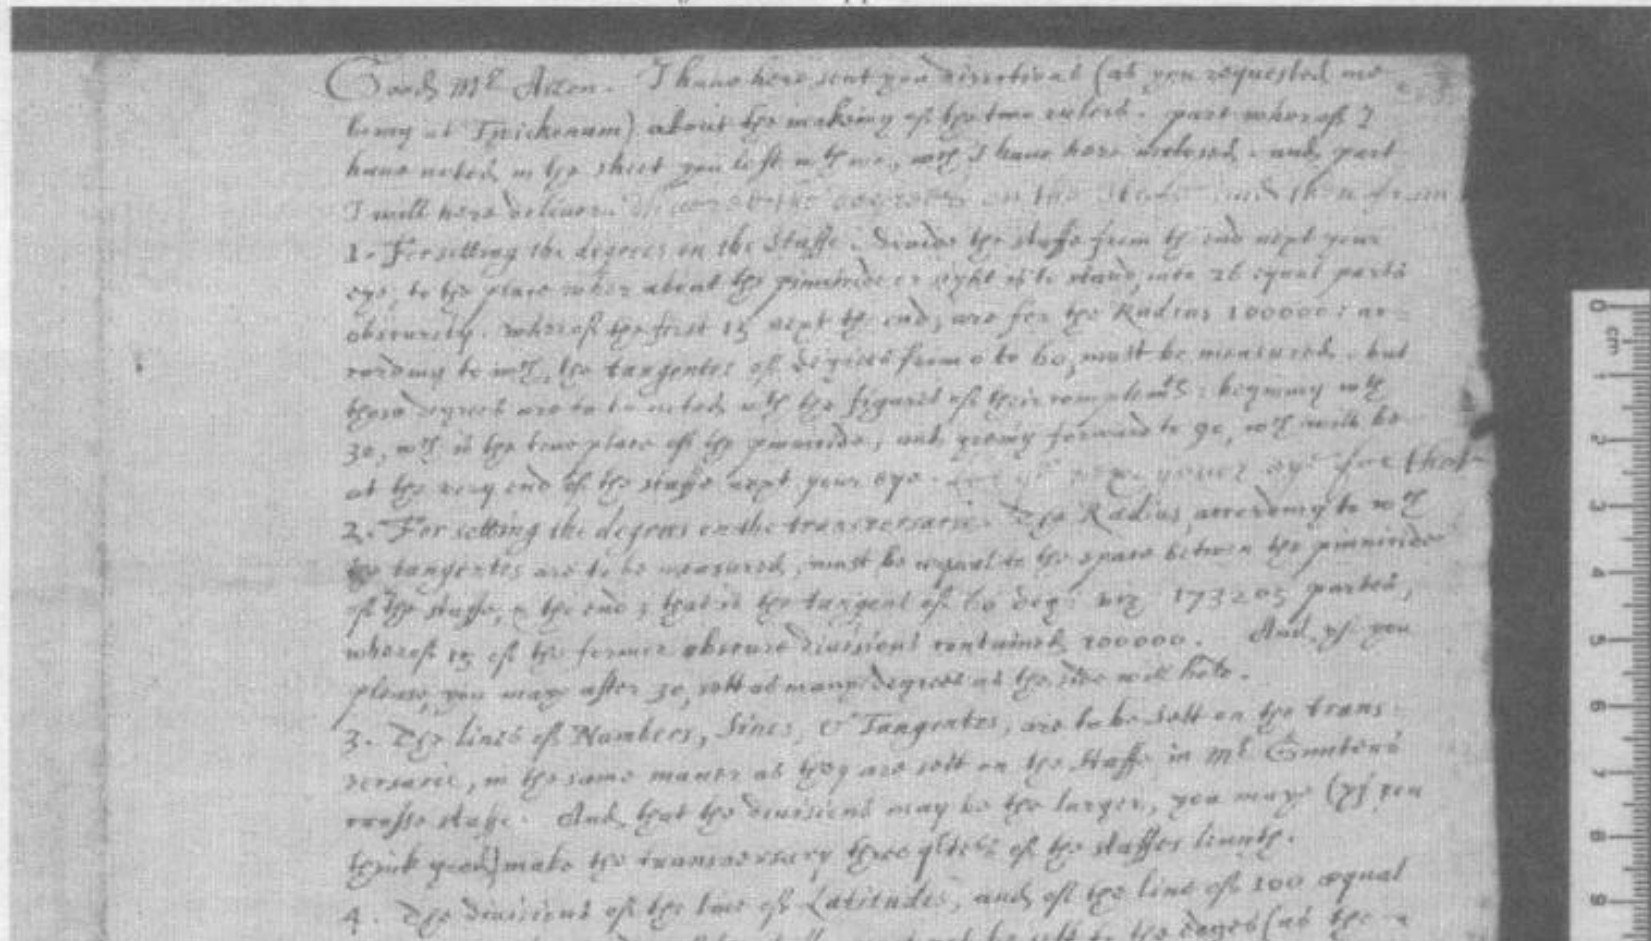 Good Mr Allen. I haue here sent you directions (as you requested me
being at Twickenam) about the making of the two rulers. part whereof I
haue noted in the sheet you left with me, wch I haue here inclosed. and part
I will here deliuer. the degrees on the Staff and then from
1. For setting the degrees on the Staffe. Deuide the staffe from the end next your
eye, to the place where about the pinnicide or sight is to stand, into 26 equal parts
obscurely. whereof the first 15 next the end, are for the Radius 100000: ac-
cording to wch, the tangentes of degrees from 0 to 60, must be measured. but
those degrees are to be noted wth the figures of their complemts: beginning wth
30, wch is the true place of the pinnicide, and going forward to 90, wch will be
at the very end of the staffe next your eye. your eye for that
2. For setting the degrees on the transversarie. The Radius according to wch
the tangentes are to be measured, must be aequal to the space between the pinnicide
of the staffe, & the end; that is the tangent of 60 deg: viz 173205 partes,
whereof 15 of the former obscure diuisions contained 100000. And yf you
please, you may after 30, sett as many degrees as the side will hold.
3. The lines of Numbers, Sines, & Tangentes, are to be sett on the trans-
versarie, in the same maner as they are sett on the Staffe in Mr Gunters
crosse staffe. And that the diuisions may be the larger, you maye (yf you
think good) make the transversary three of the staffes length.
4. The diuisions of the line of Latitudes, and of the line of 100 aequal
to the edges (as the